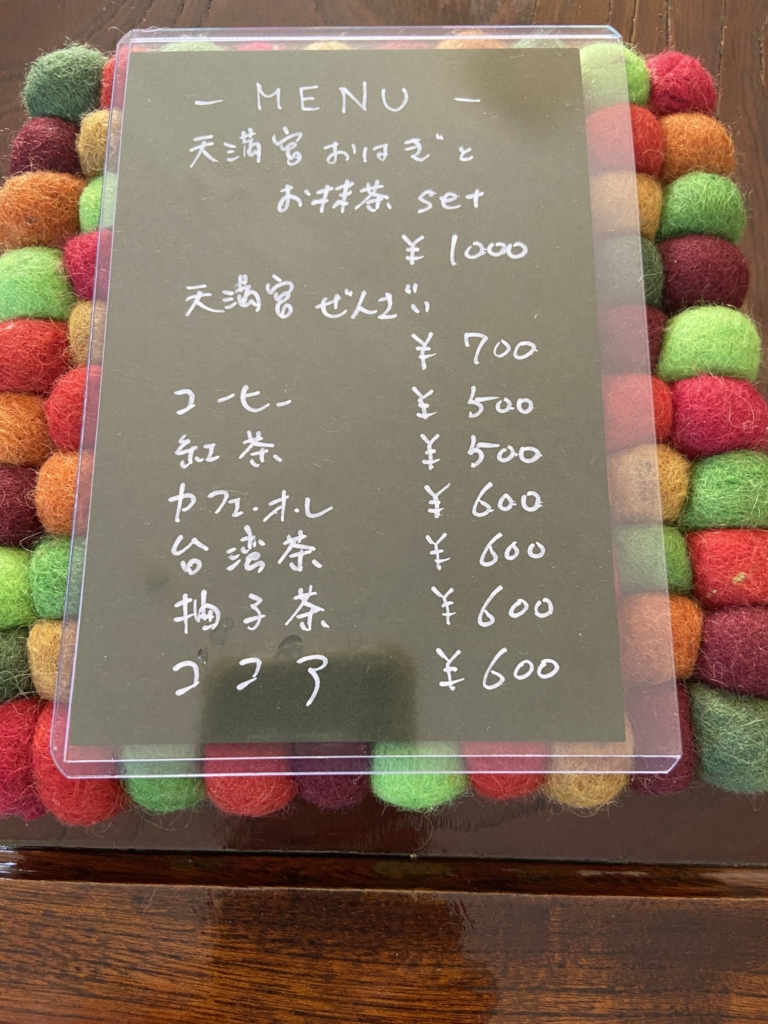 - MENU -
天満宮 おはぎと
お抹茶 set
¥ 1000
天満宮 ぜんざい
¥ 700
コーヒー ¥ 500
紅茶 ¥ 500
カフェ・オ・レ ¥ 600
台湾茶 ¥ 600
柚子茶 ¥ 600
ココア ¥ 600